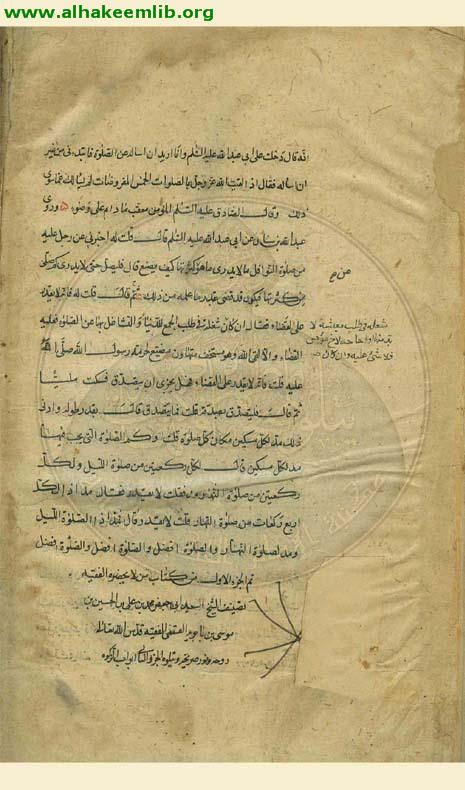 www.alhakeemlib.org
انّه قال دخلت على ابي عبد الله عليه السّلم وانا اريد ان اساله عن الصّلوة فابتدءني من غير
ان اساله فقال اذا لقيت الله عز وجل بالصلوات الخمس المفروضات لم يسألك عمّا سوى
ذلك وقال الصّادق عليه السّلم المؤمن معقب ما دام على وضوء وروى
عبد الله بن سنان عن ابي عبد الله عليه السّلم قال قلت له اخبرني عن رجل عليه
من صلوة النوافل ما لا يدرى ما هو من كثرتها كيف يصنع قال فليصل حتى لا يدرى كم صلى
من كثرتها فيكون قد قضى بقدر ما علمه من ذلك ثم قال قلت له فانه لا يقدر
على القضاء فقال ان كان شغله في طلب الجمع للدنيا والتشاغل بها عن الصلوة فعليه
القضاء والا لقى الله وهو مستخف متهاون مضيّع لحرمة رسول الله صلّى الله
عليه قلت فانه لا يقدر على القضاء هل يجزى ان يتصدق فسكت مليّا
ثم قال فليتصدّق بصدقة قلت فما يتصدق قال بقدر طوله وادنى
ذلك مد لكل مسكين مكان كل صلوة قلت وكم الصّلوة التي يجب فيها
مد لكل مسكين قال لكل ركعتين من صلوة الليل ولكل
ركعتين من صلوة النهار مد فقلت لا يقدر فقال مد اذا لكل
اربع ركعات من صلوة النهار قلت لا يقدر قال فمد اذا لصلوة الليل
ومد لصلوة النهار والصلوة افضل والصلوة افضل والصلوة افضل
تم الجزء الاول من كتاب من لا يحضره الفقيه
تصنيف الشيخ السعيد ابي جعفر محمد بن علي بن الحسين بن
موسى بن بابويه القمي الفقيه قدس الله تعالى
روحه ونور ضريحه ويتلوه الجزء الثاني ابواب الزكوة